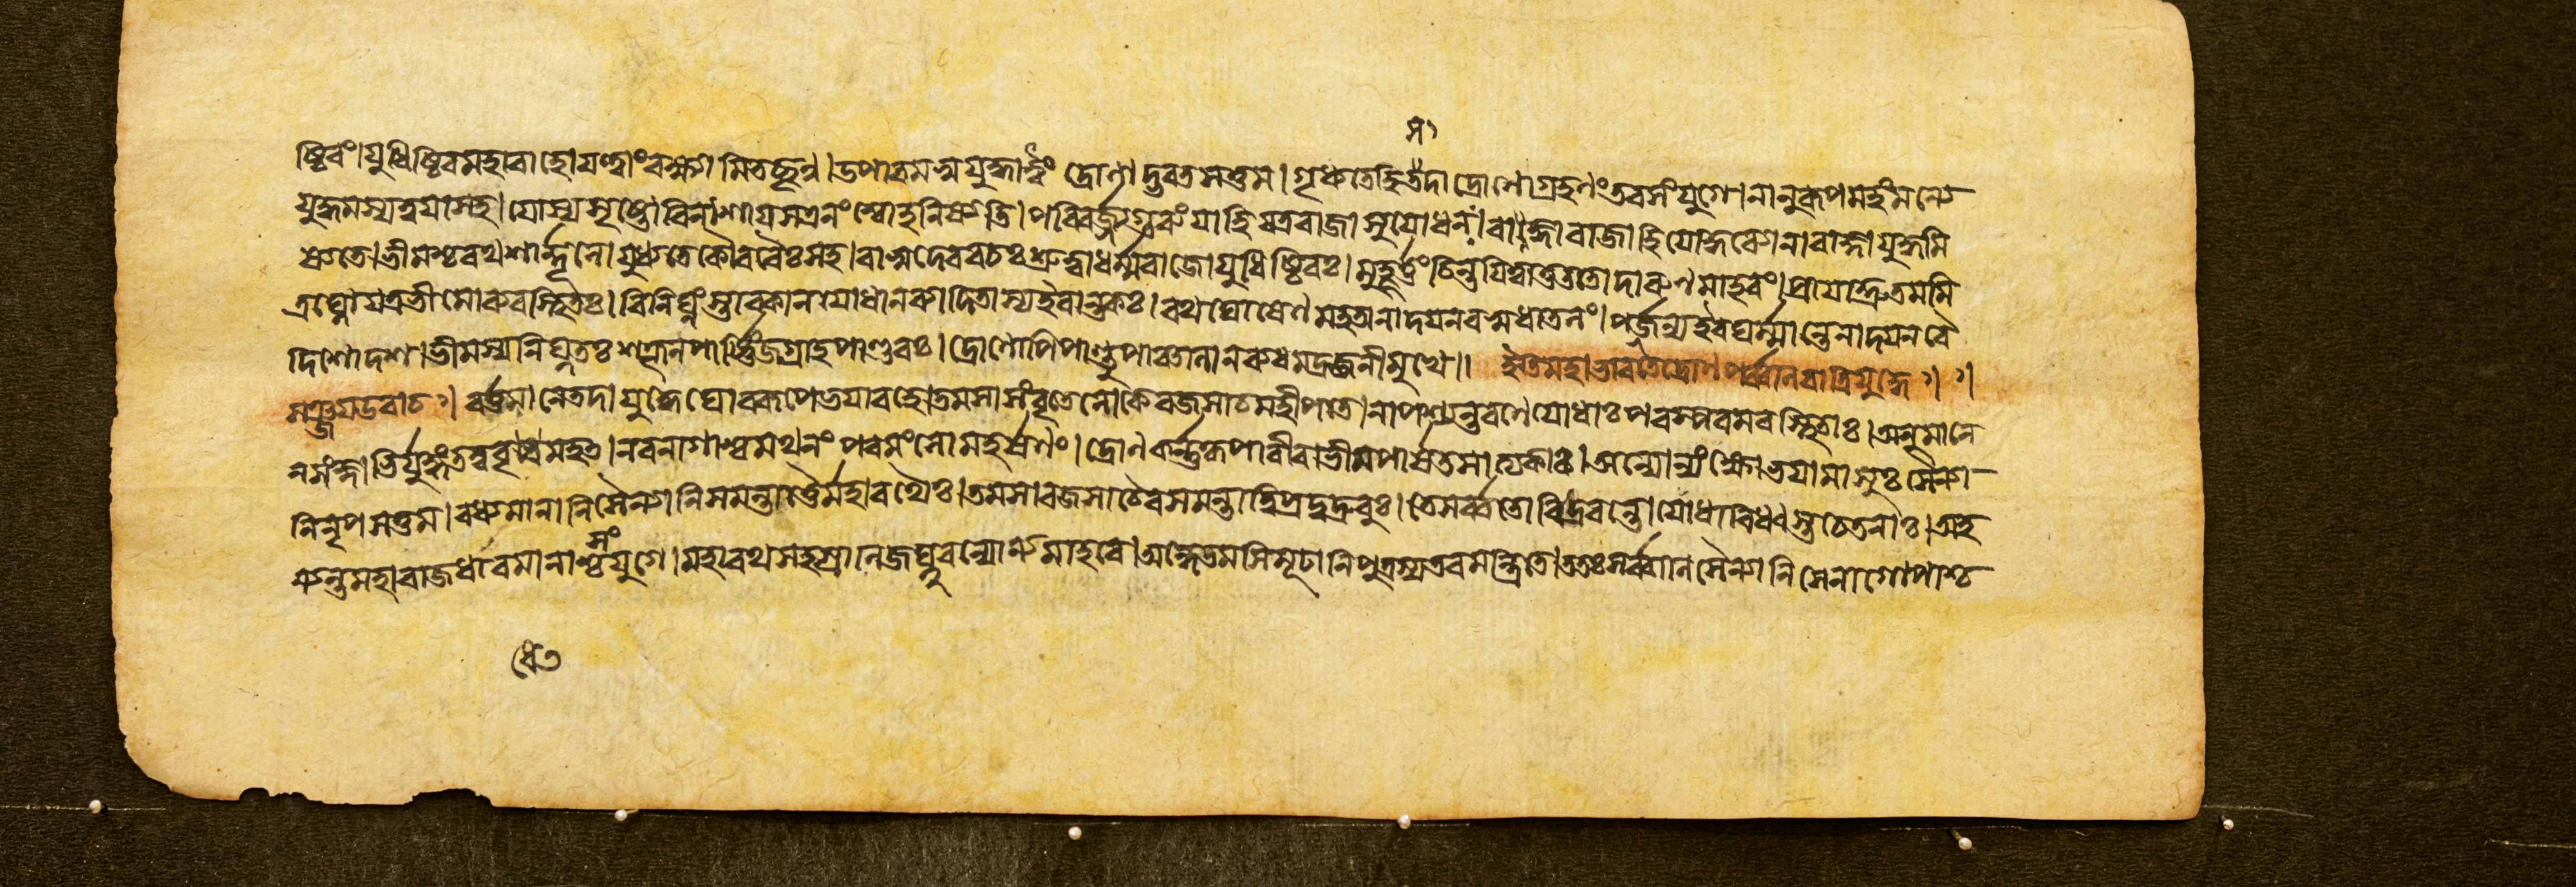 ষ্ঠিরং। যুধিষ্ঠিরমহাবাহো যত্ত্বাং বক্ষ্যামি তচ্ছৃনু। উপারমস্ব যুদ্ধার্থং দ্রোণাদ্ভরতসত্তম। গৃধ্যতে হি সদা দ্রোণো গ্রহণং তব সংযুগে। নানুরূপমহং মন্যে
যুদ্ধমস্য ত্বয়া সহ। যোস্য সৃষ্টো বিনাশায় স এনং শ্বো হনিষ্যতি। পরিবর্জ্য গুরুং যাহি যত্র রাজা সুযোধনঃ। রাজ্ঞা রাজা হি যোদ্ধব্যো নারাজ্ঞা যুদ্ধমি
ষ্যতে। ভীমশ্চ রথশার্দ্দূলো যুধ্যতে কৌরবৈঃ সহ। বাসুদেববচঃ শ্রুত্বা ধর্ম্মরাজো যুধিষ্ঠিরঃ। মুহূর্ত্তং চিন্তয়িত্বা তু ততো দারুণমাহবং। প্রায়াদ্দ্রুতমমি
ত্রঘ্নো যত্র ভীমো ব্যবস্থিতঃ। বিনিঘ্নংস্তাবকান্ যোধান্ ব্যাদিতাস্য ইবান্তকঃ। রথঘোষেণ মহতা নাদয়ন্ বসুধাতলং। পর্জ্জন্য ইব ঘর্ম্মান্তে নাদয়ন্ বৈ
দিশো দশ। ভীমস্য নিঘ্নতঃ শত্রূন্ পার্ষ্ণিং জগ্রাহ পাণ্ডবঃ। দ্রোণোপি পাণ্ডুপাঞ্চালান্ ব্যধমদ্রজনীমুখে॥ ইতি মহাভারতে দ্রোণপর্ব্বণি রাত্রিযুদ্ধে॥
সঞ্জয় উবাচ। বর্ত্তমানে তদা যুদ্ধে ঘোররূপে ভয়াবহে। তমসা সংবৃতে লোকে রজসা চ মহীপতে। নাপশ্যন্ত রণে যোধাঃ পরস্পরমবস্থিতাঃ। অনুমানে
ন সংজ্ঞাভির্যুদ্ধং তদ্ববৃধে মহৎ। নরনাগাশ্বমথনং পরমং লোমহর্ষণং। দ্রোণকর্ন্নকৃপা বীরা ভীমপার্ষতসাত্যকাঃ। অন্যোন্যং ক্ষোভয়ামাসুঃ সৈন্যা
নি নৃপসত্তম। বধ্যমানানি সৈন্যানি সমন্তাত্তৈর্মহারথৈঃ। তমসা রজসা চৈব সমন্তাদ্বিপ্রদুদ্রুবুঃ। তে সর্ব্বতো বিদ্রবন্তো যোধা বিধ্বস্তচেতনাঃ। অহ
ন্যন্ত মহারাজ ধাবমানাশ্চ সংযুগে। মহারথসহস্রাণি জঘ্নুরন্যোন্যমাহবে। অন্ধে তমসি মূঢানি পুত্রস্য তব মন্ত্রিতে। ততঃ সর্ব্বাণি সৈন্যানি সেনাগোপাশ্চ